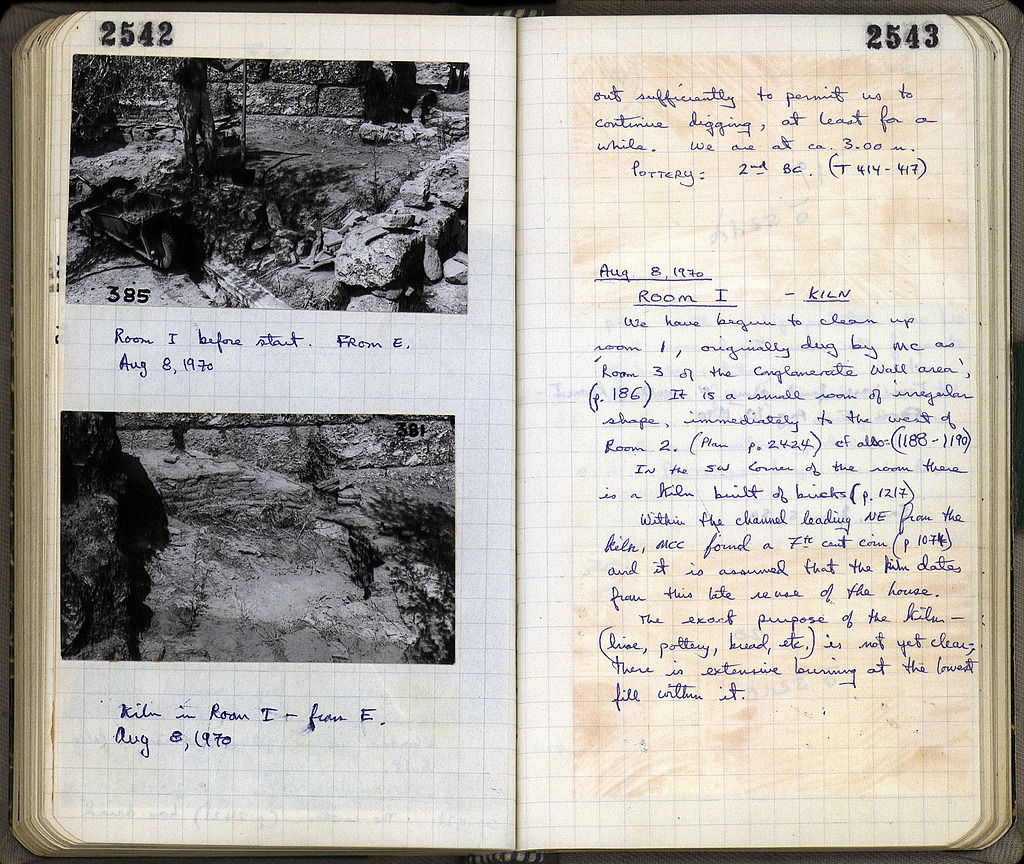 2542
385
Room I before start. From E.
Aug 8, 1970
381
Kiln in Room I – from E.
Aug 8, 1970
2543
out sufficiently to permit us to
continue digging, at least for a
while. We are at ca. 3.00 m.
POTTERY: 2nd BC. (T 414-417)
Aug. 8, 1970
ROOM I – KILN
We have begun to clean up
room 1, originally dug by MC as
'Room 3 of the Conglomerate Wall area',
(p. 186) It is a small room of irregular
shape, immediately to the west of
Room 2. (Plan p. 2424) cf also (1188-1190)
In the SW corner of the room there
is a kiln built of bricks (p. 1217)
Within the channel leading NE from the
kiln, MCC found a 7th cent coin (p 1074)
and it is assumed that the kiln dates
from this late reuse of the house.
The exact purpose of the kiln –
(lime, pottery, bread, etc.) is not yet clear;
there is extensive burning at the lowest
fill within it.